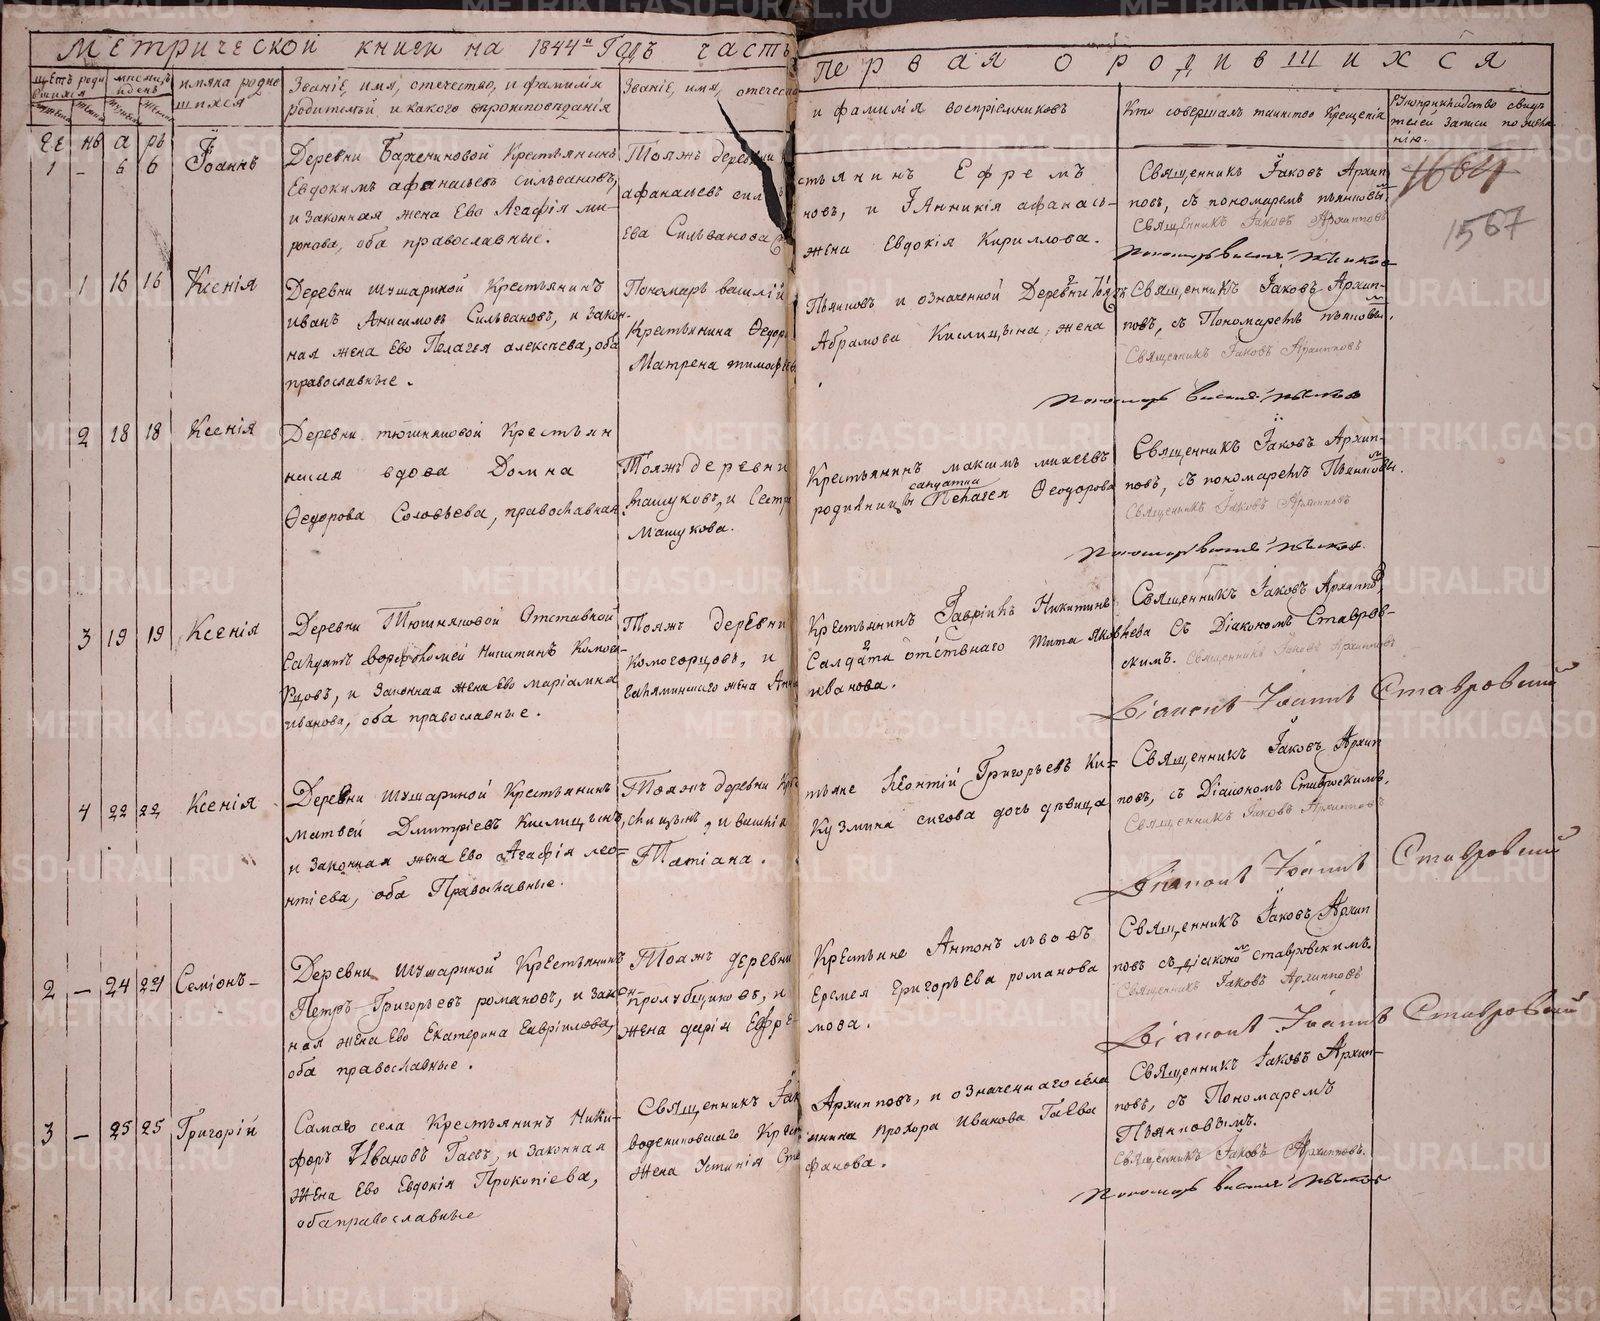 Метрической книги на 1844й Годъ часть первая о родившихся
Званіе, имя, отечество, и фамилія
родителей и какого вѣроисповѣданія
Званіе, имя, отечест
и фамилія воспріемниковъ
Кто совершалъ таинство Крещенія
Ге нв а рь
1 - 6 6 Іоаннъ
Деревни Бажениновой Крестьянинъ
Евдокимъ афанасьевъ сильвановъ,
и законная жена Ево Агафія ми-
ронова, оба православные.
Тояжъ деревни
афанасьевъ сил
ева Сильванова
стьянинъ Ефремъ
новъ, и Іанникія афанась-
жена Евдокія Кириллова.
Священникъ Іаковъ Архип
повъ, съ пономаремъ пьянковым
Священникъ Іаковъ Архипповъ
1664
1567
1 16 16 Ксенія
Деревни шушариной Крестьянинъ
иванъ Анисимовъ Сильвановъ, и закон-
ная жена Ево Пелагея алексѣева, оба
православные.
Пономарь василій
Крестьянина Ѳедор
Матрена тимофѣев
Пьянковъ и означенной Деревни
Абрамова Кислицына, жена
Священникъ Іаковъ Архип-
повъ, съ Пономаремъ пьянковым.
Священникъ Іаковъ Архипповъ
2 18 18 Ксенія
Деревни тюшняповой Крестьян
ская вдова Домна
Ѳедорова Соловьева, православная
Тояжъ деревни
Машуковъ, и Сестр
Машукова.
Крестьянинъ максимъ михеевъ
солдатка
родивницы Пелагея Ѳеодорова
Священникъ Іаковъ Архип-
повъ, съ пономаремъ Пьянковым.
Священникъ Іаковъ Архипповъ
3 19 19 Ксенія
Деревни Тюшняповой Отставной
Салдатъ ворфоломей Никитинъ Комого-
рцовъ, и Законная жена Ево маріамна
иванова, оба православные.
Тояжъ деревни
Комогорцовъ, и
жена Анна
Крестьянинъ Гавріилъ Никитинъ
Салдата отствнаго тита яковлева
иванова.
Священникъ Іаковъ Архиппо,
съ Діакономъ Ставров-
скимъ. Священникъ Іаковъ Архипповъ
Діаконъ Іоаннъ Ставровскій
4 22 22 Ксенія
Деревни шушариной Крестьянинъ
матвей Дмитріевъ Кислицынъ,
и Законная жена Ево Агафія лео=
нтіева, оба Православные.
Тояжъ деревни Кре
слицынъ, и василія
Татіана.
тьяне Леонтій Григорьевъ Ки=
Кузмина сигова дочь дѣвица
Священникъ Іаковъ Архип
повъ, съ Діакономъ Ставровскимъ.
Священникъ Іаковъ Архипповъ
Діаконъ Іоаннъ Ставровскій
2 - 24 24 Семіонъ-
Деревни Шушариной Крестьянинъ
Петръ Григорьевъ романовъ, и закон-
ная жена Ево Екатерина Гавріилова,
оба православные.
Тояжъ деревни
пролубщиковъ, и
жена дарія Ефре-
Крестьяне Антонъ львовъ
Еремея Григорьева романова
мова.
Священникъ Іаковъ Архип
повъ съ діаконом ставровскимъ.
Священникъ Іаковъ Архипповъ
Діаконъ Іоаннъ Ставровскій
3 - 25 25 Григорій
Самаго села Крестьянинъ Ники-
форъ Ивановъ Гаевъ, и законная
жена Ево Евдокія Прокопіева,
оба православные
Священникъ Іак
Крест
жена Устинія Сте
Архипповъ, и означеннаго села
янина Прохора Иванова Гаева
фанова.
Священникъ Іаковъ Архип-
повъ, съ Пономаремъ
Пьянковымъ.
Священникъ Іаковъ Архипповъ.
METRIKI.GASO-URAL.RU